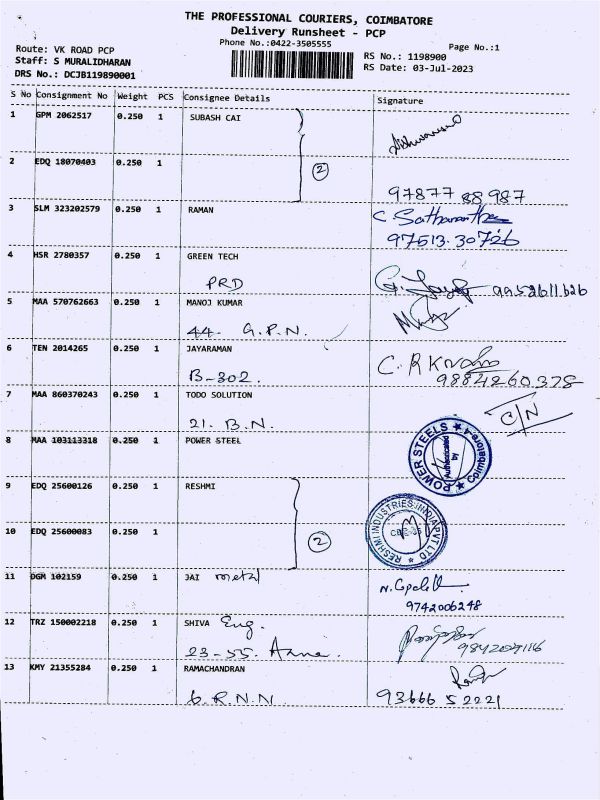 THE PROFESSIONAL COURIERS, COIMBATORE
Delivery Runsheet - PCP
Phone No.:0422-3505555
Page No.:1
Route: VK ROAD PCP
Staff: S MURALIDHARAN
DRS No.: DCJB119890001
RS No.: 1198900
RS Date: 03-Jul-2023
S No Consignment No Weight PCS Consignee Details Signature
1 GPM 2062517 0.250 1 SUBASH CAI
2 EDQ 18070403 0.250 1
2
97877 88 987
3 SLM 323202579 0.250 1 RAMAN
97513.30726
4 HSR 2780357 0.250 1 GREEN TECH
PRD
9952611626
5 MAA 570762663 0.250 1 MANOJ KUMAR
44. G.P.N.
6 TEN 2014265 0.250 1 JAYARAMAN
B-302.
9884260378
7 MAA 860370243 0.250 1 TODO SOLUTION
21. B.N.
C/N
8 MAA 103113318 0.250 1 POWER STEEL
POWER STEELS
Coimbatore
Authenticated
by
9 EDQ 25600126 0.250 1 RESHMI
10 EDQ 25600083 0.250 1
2
RESHMI INDUSTRIES INDIA PVT LTD
CBE-35
11 DGM 102159 0.250 1 JAI metal
9742006248
12 TRZ 150002218 0.250 1 SHIVA Eng.
23-55. Anna.
13 KMY 21355284 0.250 1 RAMACHANDRAN
6.R.N.N.
93666 5 2221